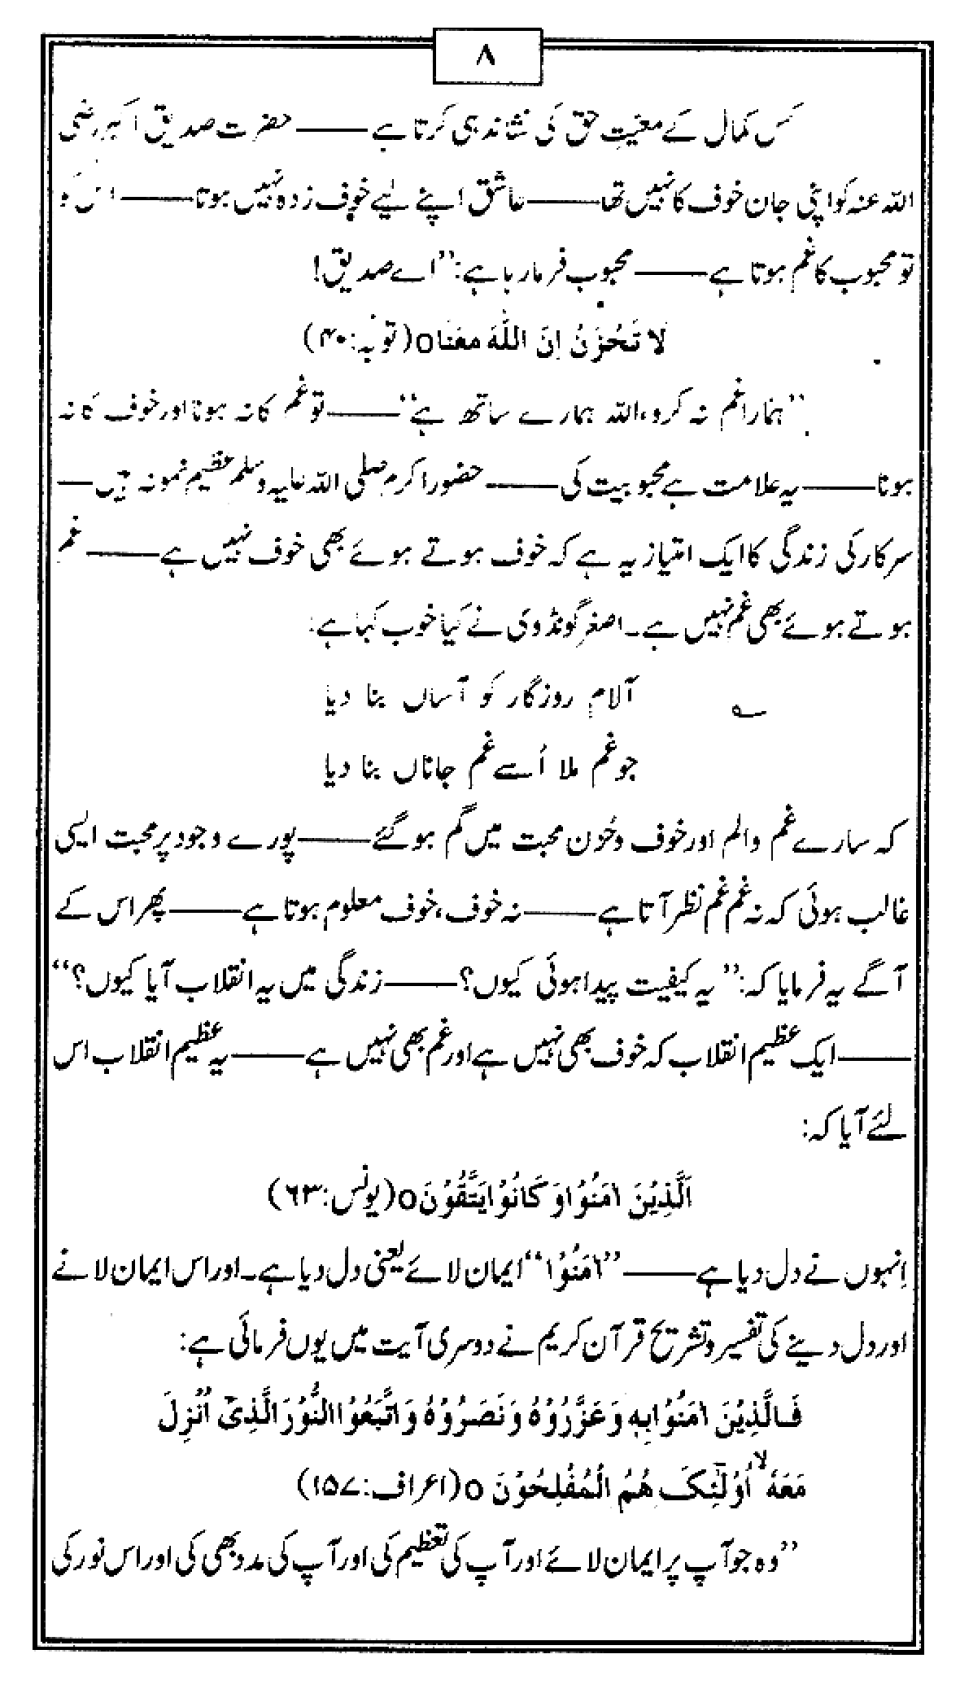 ۸
کس کمال کے معیتِ حق کی نشاندہی کرتا ہے —— حضرت صدیق اکبر رضی
اللہ عنہ کو اپنی جان خوف کا نہیں تھا —— عاشق اپنے لیے خوف زدہ نہیں ہوتا —— اس کو
تو محبوب کا غم ہوتا ہے —— محبوب فرما رہا ہے: ’’اے صدیق!
لَا تَحْزَنْ اِنَّ اللّٰهَ مَعَنَا o (توبہ: ۴۰)
’’ہمارا غم نہ کرو، اللہ ہمارے ساتھ ہے‘‘ —— تو غم کا نہ ہونا اور خوف کا نہ
ہونا —— یہ علامت ہے محبوبیت کی —— حضور اکرم صلی اللہ علیہ وسلم عظیم نمونہ ہیں ——
سرکار کی زندگی کا ایک امتیاز یہ ہے کہ خوف ہوتے ہوئے بھی خوف نہیں ہے —— غم
ہوتے ہوئے بھی غم نہیں ہے۔ اصغر گونڈوی نے کیا خوب کہا ہے:
؎ آلامِ روزگار کو آساں بنا دیا
جو غم ملا اُسے غم جاناں بنا دیا
کہ سارے غم والم اور خوف وحُزن محبت میں گم ہو گئے —— پورے وجود پر محبت ایسی
غالب ہوئی کہ نہ غم غم نظر آتا ہے —— نہ خوف، خوف معلوم ہوتا ہے —— پھر اس کے
آگے یہ فرمایا کہ: ’’یہ کیفیت پیدا ہوئی کیوں؟ —— زندگی میں یہ انقلاب آیا کیوں؟‘‘
—— ایک عظیم انقلاب کہ خوف بھی نہیں ہے اور غم بھی نہیں ہے —— یہ عظیم انقلاب اس
لئے آیا کہ:
اَلَّذِیْنَ اٰمَنُوْا وَ كَانُوْا یَتَّقُوْنَ o (یونس: ۶۳)
اِنہوں نے دل دیا ہے —— ’’اٰمَنُوْا‘‘ ایمان لائے یعنی دل دیا ہے۔ اور اس ایمان لانے
اور دل دینے کی تفسیر وتشریح قرآن کریم نے دوسری آیت میں یوں فرمائی ہے:
فَالَّذِیْنَ اٰمَنُوْا بِهٖ وَ عَزَّرُوْهُ وَ نَصَرُوْهُ وَ اتَّبَعُوا النُّوْرَ الَّذِیْۤ اُنْزِلَ
مَعَهٗۤ ۙ اُولٰٓئِكَ هُمُ الْمُفْلِحُوْنَ o (اعراف: ۱۵۷)
’’وہ جو آپ پر ایمان لائے اور آپ کی تعظیم کی اور آپ کی مدد بھی کی اور اس نور کی